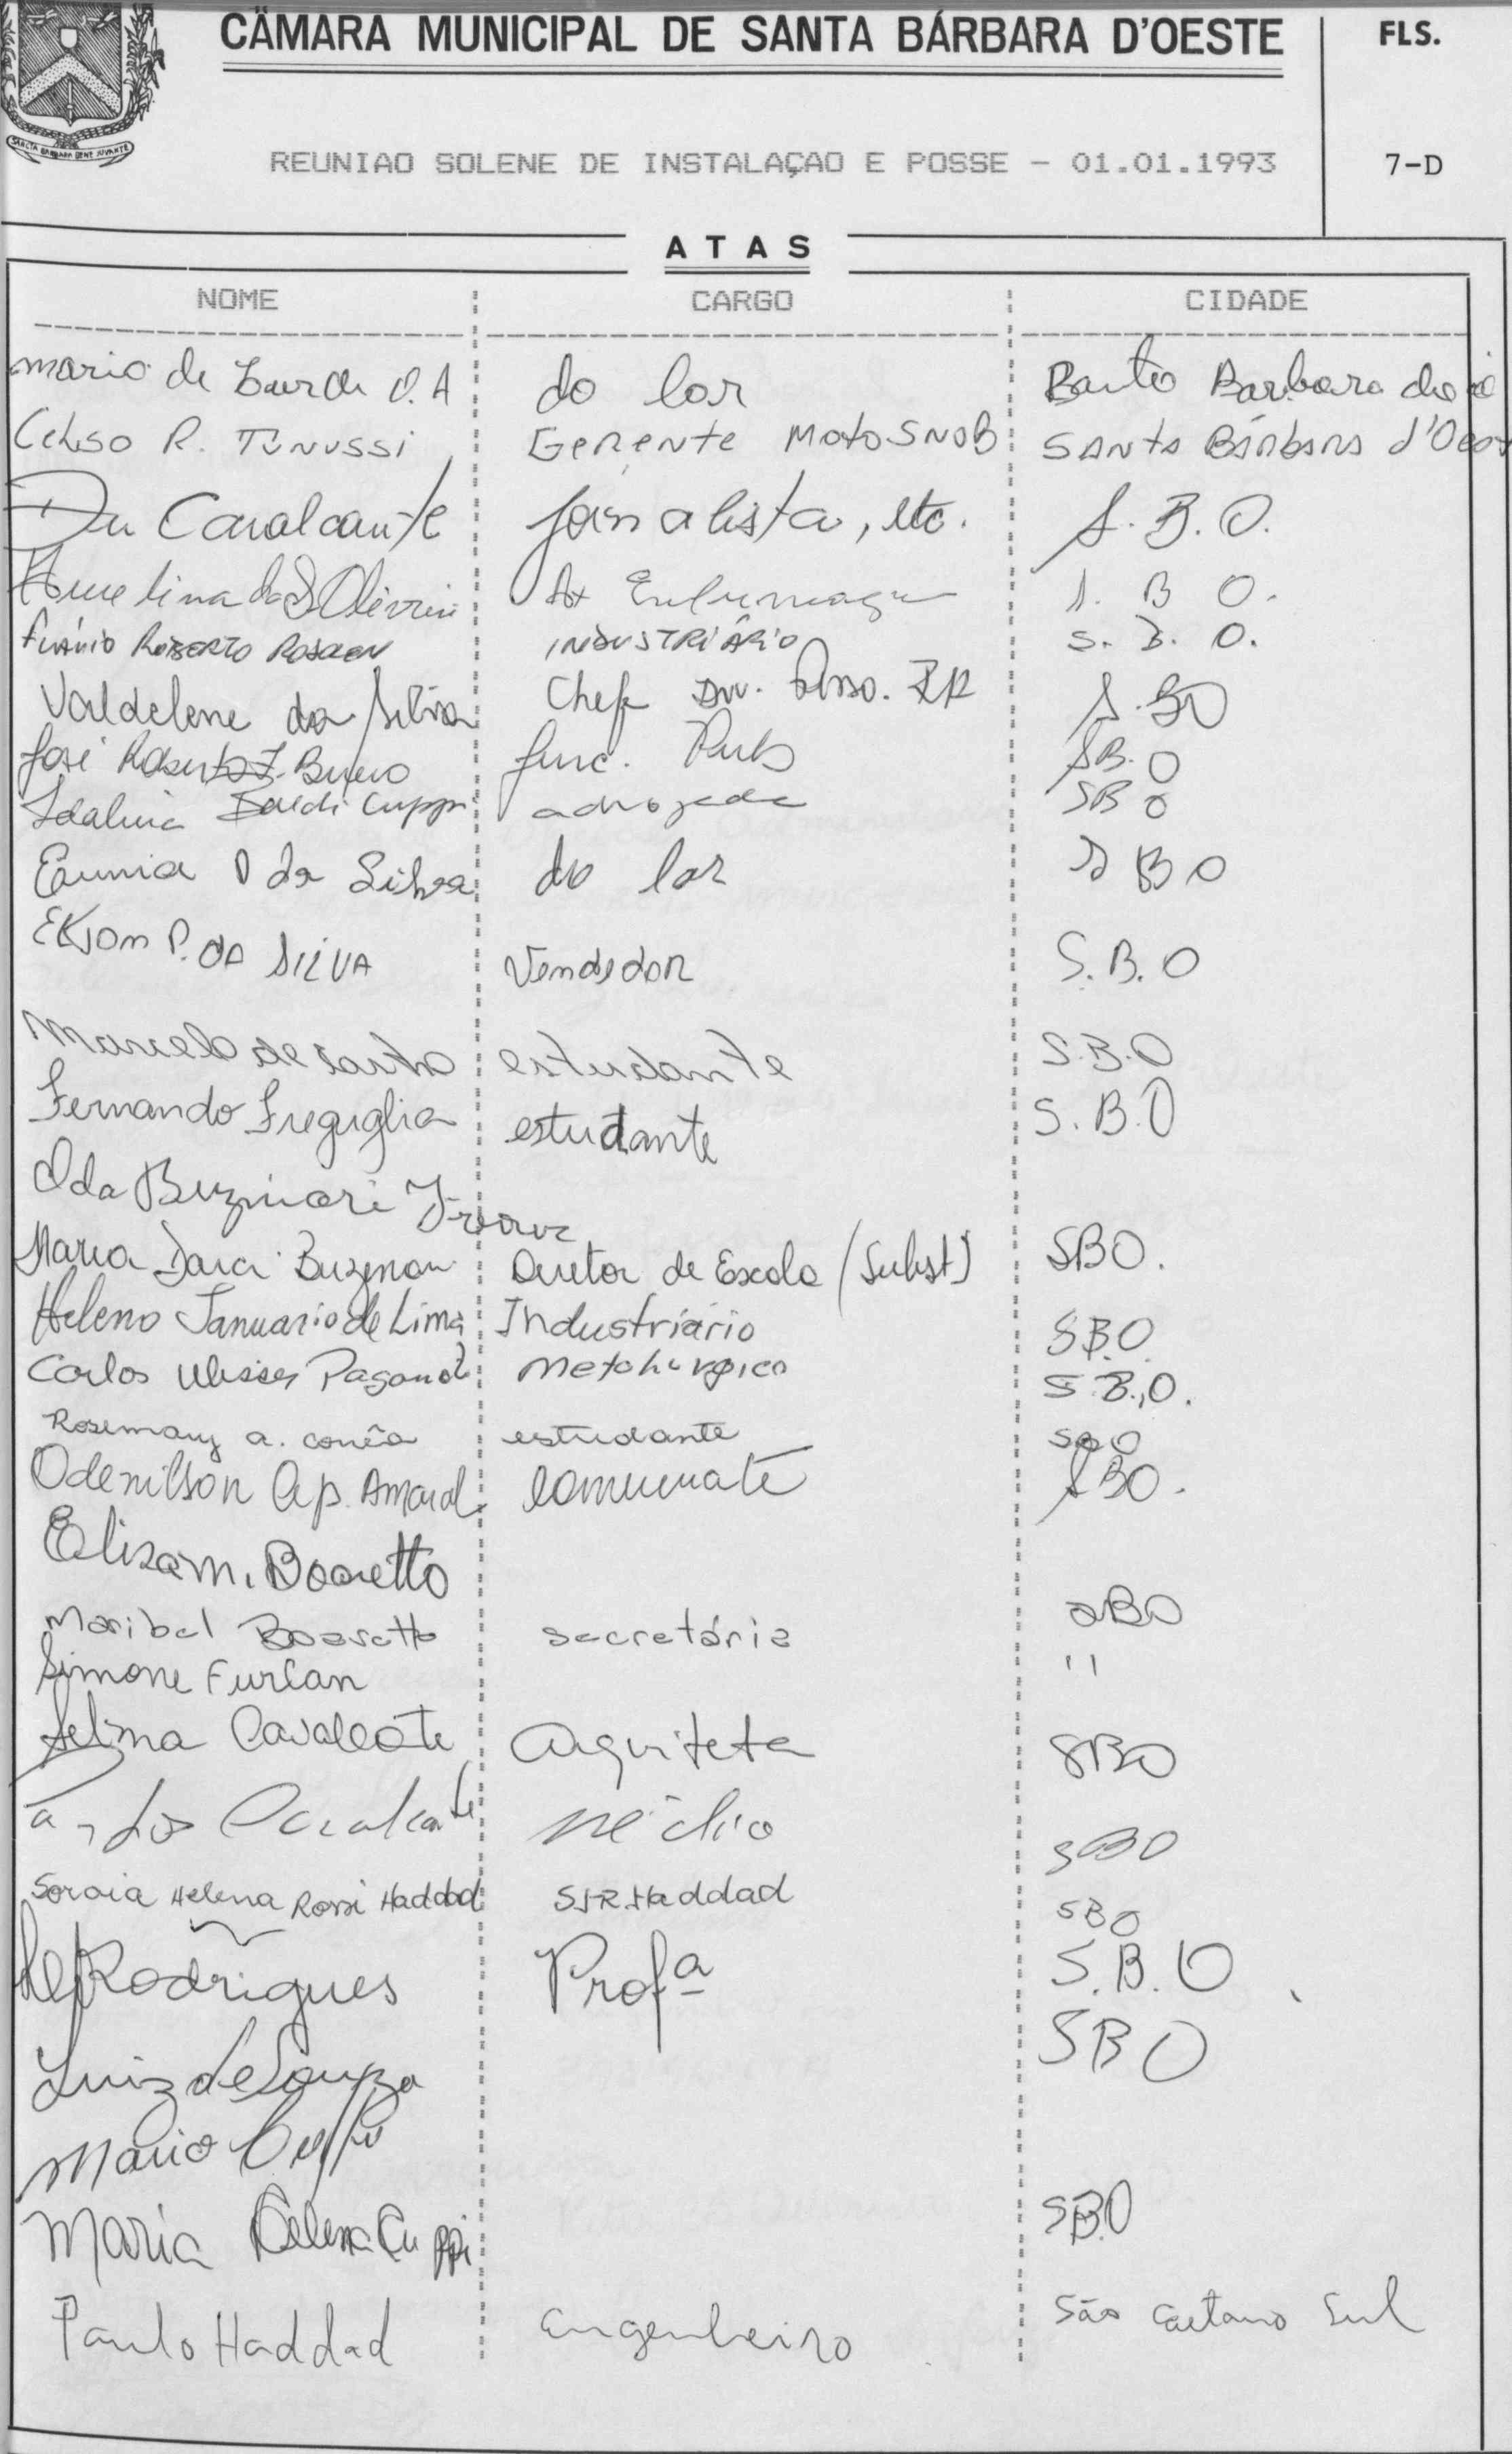 CÂMARA MUNICIPAL DE SANTA BÁRBARA D'OESTE FLS.
REUNIAO SOLENE DE INSTALAÇAO E POSSE - 01.01.1993 7-D
ATAS
NOME CARGO CIDADE
maria de O.A do lar Barbara
Celso R. Tinussi Gerente MotoSNOB SANTA BÁRBARA d'Oes
Du Cavalcante jornalista, etc. S.B.O.
da S Oliveira Ax Enfermagem S. B O.
Flávio ROBERTO INDUSTRIÁRIO S. B. O.
Valdelene da Silva Chefe Div. S.BO
José Roberto Bueno func. Pub SB.O
Idalina Cuppi advogada SBO
Eunice D da Silva do lar S B O
P. da SILVA Vendedor S.B.O
Marcelo de estudante S.B.O
Fernando Fregiglia estudante S.B.O
Oda
Maria Darci Diretor de Escola (Subst) SBO.
Heleno Januario de Lima Industriário SBO
Carlos Ulisses Paganoti Metalurgico S.B.,O.
Rosemary a. corrêa estudante SBO
Odenilson Ap. Amaral SBO.
Elisa M. Boaretto
Maribel Boaretto secretária SBO
Simone Furlan "
Selma Cavalcate arquiteta SBO
Cavalcante médico SBO
Soraia Helena Rossi Haddad SHRHaddad SBO
Rodrigues Profª S.B.O
Luiz de Souza SBO
Mario Cuppi
Maria Celena Cuppi SBO
Paulo Haddad engenheiro São Caetano Sul